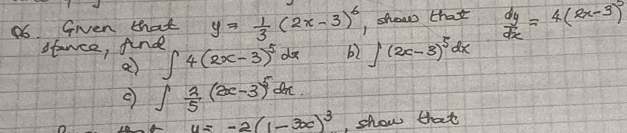 Q6. Given that y = 1/3 (2x-3)^6, show that dy/dx = 4(2x-3)^5
Hence, find
a) ∫ 4(2x-3)^5 dx b) ∫ (2x-3)^5 dx
c) ∫ 2/5 (2x-3)^5 dx.
y = -2(1-3x)^3, show that